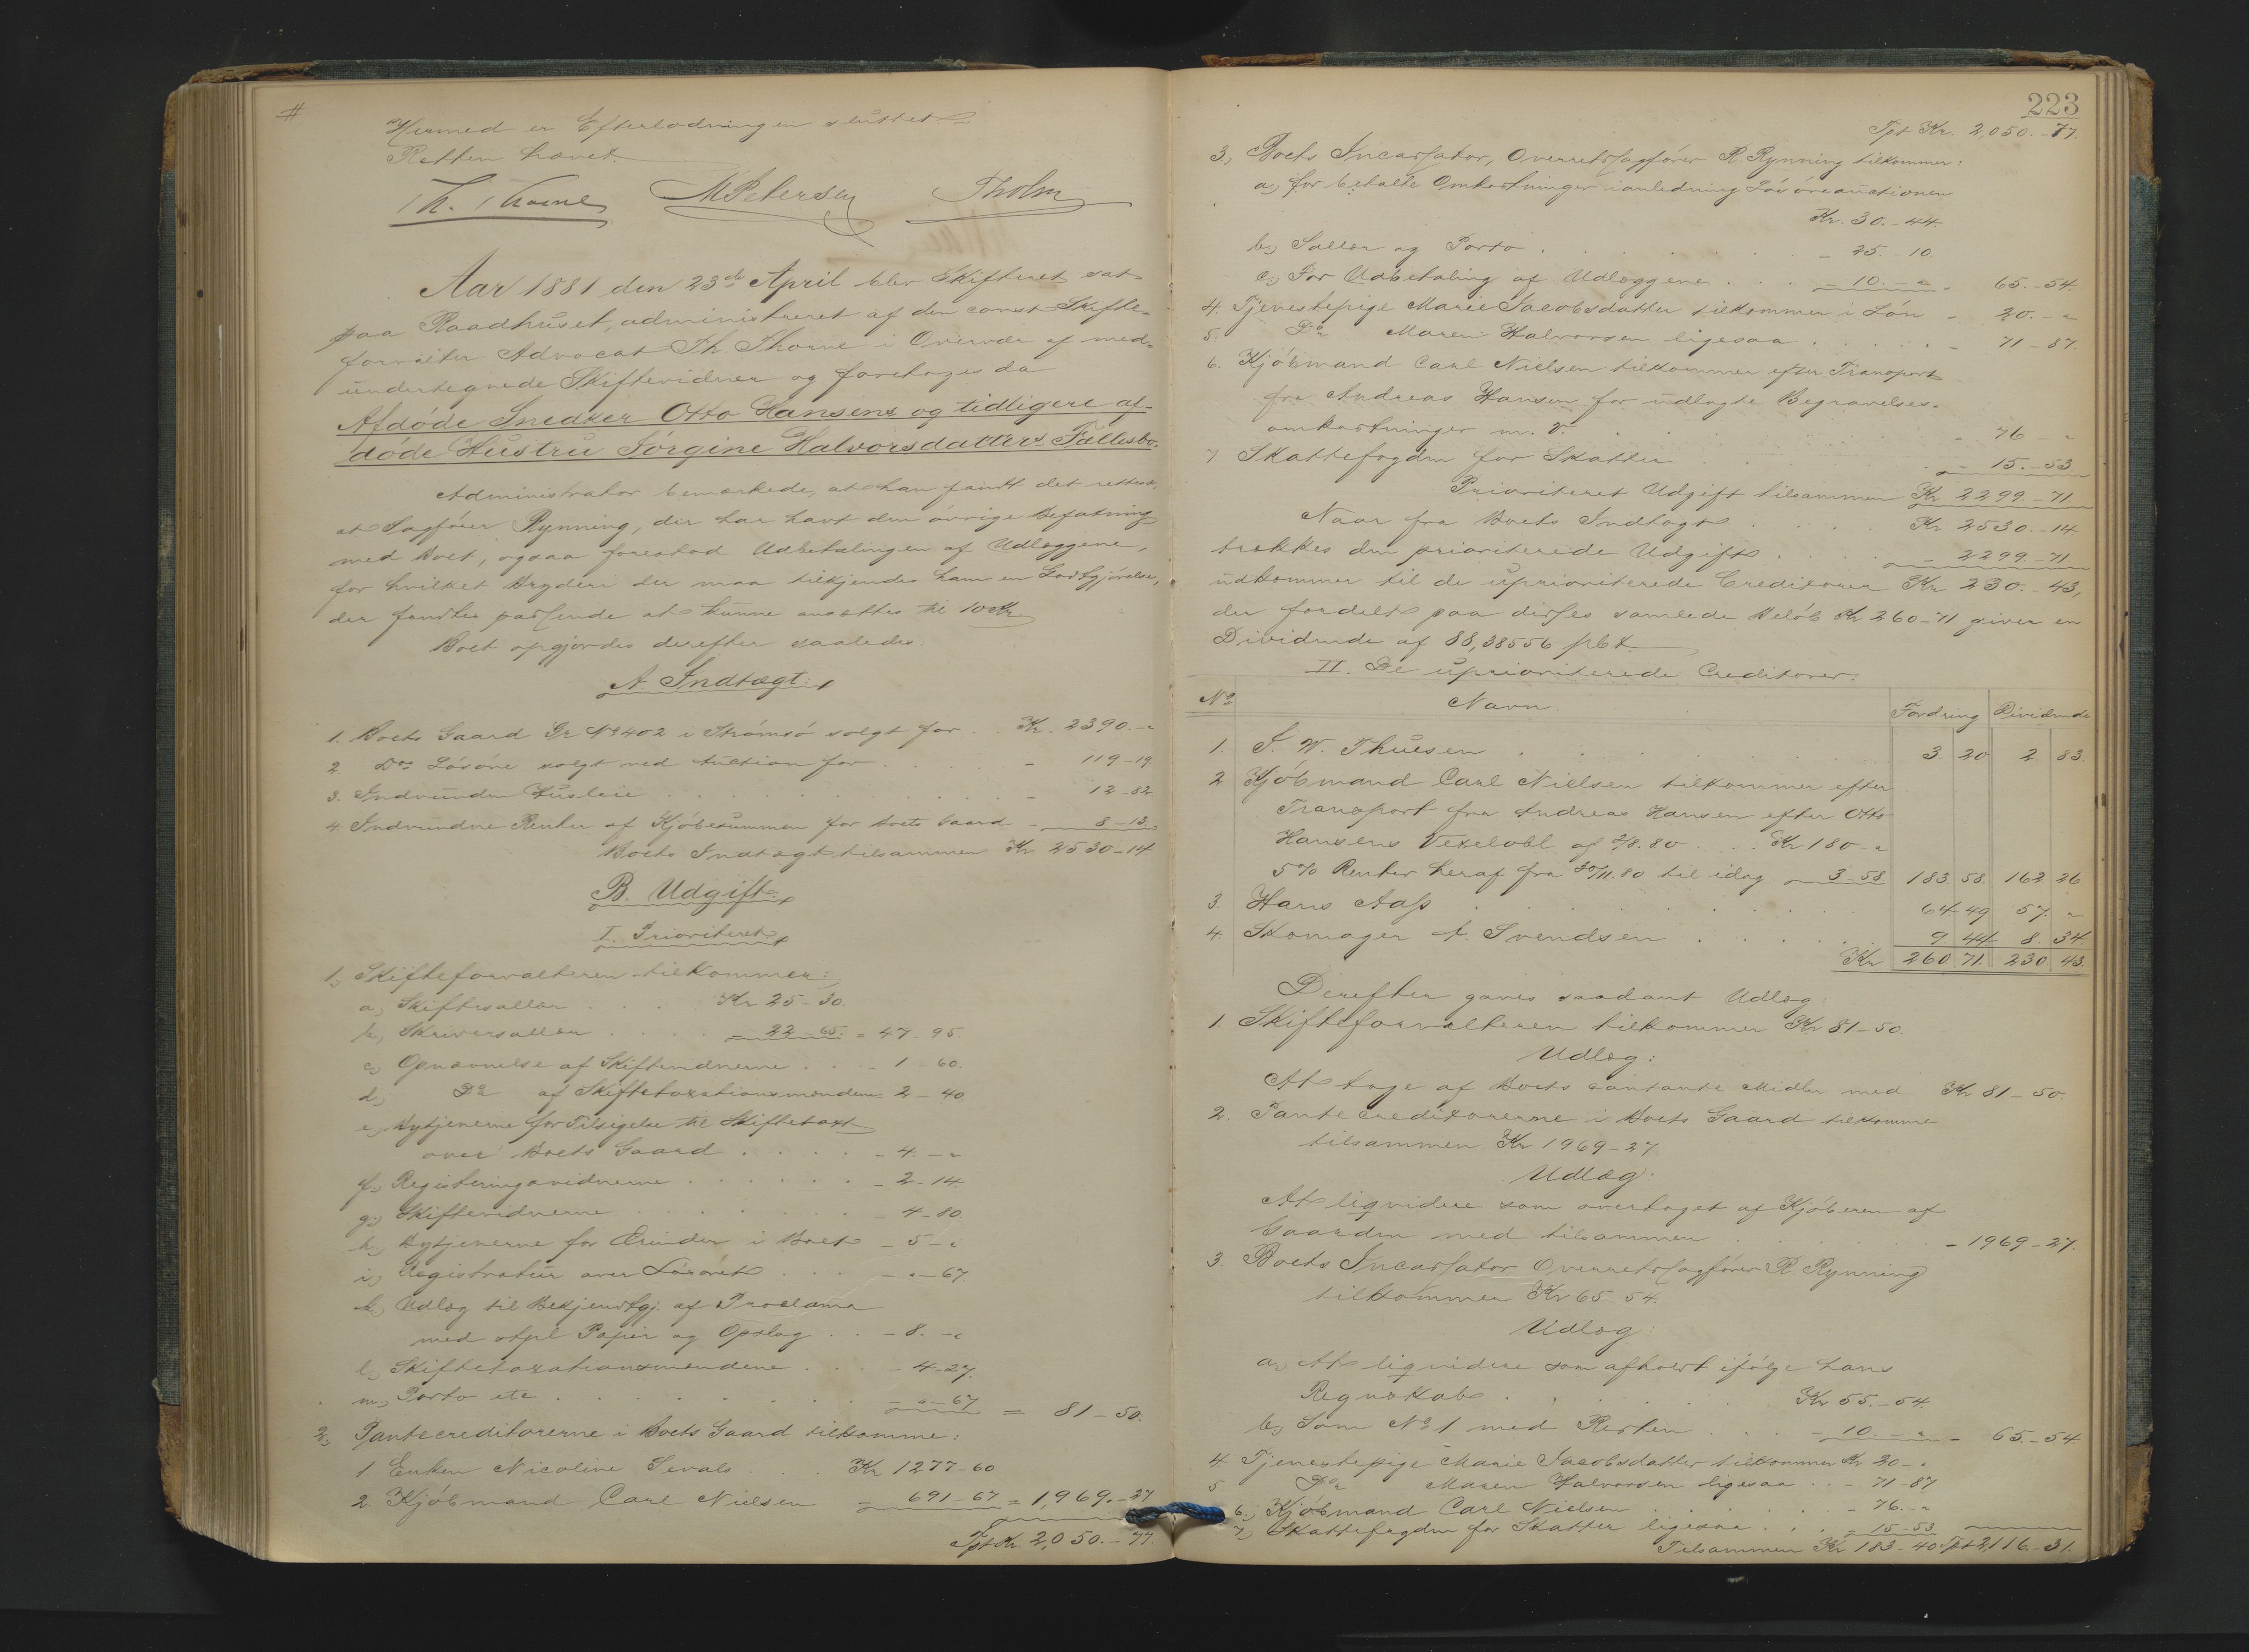 #
Hermed er Efterlodningen sluttet.
Retten hævet.
Th. Thorne MPetersen Tholm
Aar 1881 den 23de April blev Skifteret sat
paa Raadhuset, administreret af den const. Skifte-
forvalter Advocat Th Thorne i Overvær af med-
undertegnede Skiftevidner og foretoges da
Afdøde Snedker Otto Hansens og tidligere af-
døde Hustru Jørgine Halvorsdatters Fællesbo.
Administrator bemærkede, at han fandt det rettest,
at Sagfører Rynning, der har havt den øvrige Befatning
med Boet, ogsaa forestod Udbetalingen af Udlæggene,
for hvilket Bryderi der maa tilkjendes ham en Godtgjørelse,
der fandtes passende at kunne ansættes til 10 Kr
Boet opgjordes derefter saaledes:
A. Indtægt:
1. Boets Gaard Gr No 402 i Strømsø solgt for . . Kr. 2390.-"
2 Dos Løsøre solgt ved Auction for . . . . . - 119-19
3. Indvunden Husleie . . . . . . . . . - 12-82
4 Indvundne Renter af Kjøbesummen for Boets Gaard - 8-13
Boets Indtægt tilsammen Kr 2530-14
B. Udgift:
I. Prioriteret
1, Skifteforvalteren tilkommer:
a, Skiftesallær . . . Kr 25-30
b, Skriversallær . . . . - 22-65. = 47-95.
c, Opnævnelse af Skiftevidnerne . . . - 1-60.
d, Do af Skiftetaxationsmændene - 2-40
e, Bytjenerne for Tilsigelse til Skiftetaxt
over Boets Gaard . . . . - 4.-"
f, Registeringsvidnerne . . . . . . - 2-14.
g, Skiftevidnerne . . . . . . . - 4-80.
h, Bytjenerne for Ærinder i Boet - 5-"
i, Registratur over Løsøret . . . - "-67
k, Udlæg til Bekjendtgj. af Proclama
med stpl Papir og Opslag . . - 8.-"
l, Skiftetaxationsmændene . . . - 4-27.
m, Porto etc . . . . . . . - "-67 = 81-50.
2, Pantecreditorerne i Boets Gaard tilkomme:
1. Enken Nicoline Sevals . . . Kr 1277-60
2. Kjøbmand Carl Nielsen = 691-67 = 1,969.-27
Tpt Kr. 2,050.-77.
223
Tpt Kr. 2,050.-77.
3, Boets Incassator, Overretssagfører R. Rynning tilkommer:
a, for betalte Omkostninger i anledning Løsøreauctionen
Kr. 30.-44.
b, Sallær og Porto . . . . . . . - 25.-10.
c, For Udbetaling af Udlæggene . . . - 10.-" - 65.-54.
4. Tjenestepige Marie Jacobsdatter tilkommer i Løn - 20.-"
5. Do Maren Halvorsen ligesaa . . . . . - 71-87.
6. Kjøbmand Carl Nielsen tilkommer efter Transport
fra Andreas Hansen for udlagte Begravelses-
omkostninger m. v. . . . . . - 76-"
7 Skattefogden for Skatter . . . . . - 15.-53
Prioriteret Udgift tilsammen Kr 2299.-71
Naar fra Boets Indtægt . . . . Kr 2530.-14
trækkes den prioriterede Udgift . . . - 2299-71
udkommer til de uprioriterede Creditorer Kr 230.-43,
der fordelt paa disses samlede Beløb Kr 260-71 giver en
Dividende af 88,38556 pCt.
II. De uprioriterede Creditorer.
No Navn. Fordring Dividende
1. J. W. Thuesen . . . . . 3 20 2 83.
2 Kjøbmand Carl Nielsen tilkommer efter
Transport fra Andreas Hansen efter Otto
Hansens Vexelobl. af 2/8.80 . . . Kr 180-"
5% Renter heraf fra 30/11.80 til idag - 3-58 183 58. 162 26
3. Hans Aass . . . . . . 64 49 57. "
4. Skomager A. Svendsen . . . . . 9 44 8. 34.
Kr 260 71. 230 43.
Derefter gaves saadant Udlæg:
1. Skifteforvalteren tilkommer Kr 81-50.
Udlæg:
At tage af Boets contante Midler med Kr 81-50.
2. Pantecreditorerne i Boets Gaard tilkomme
tilsammen Kr 1969-27.
Udlæg:
At liqvidere som overtaget af Kjøberen af
Gaarden med tilsammen . . . . . - 1969-27.
3. Boets Incassator Overretssagfører R. Rynning
tilkommer Kr 65-54.
Udlæg:
a, At liqvidere som afholdt ifølge hans
Regnskab . . . . . . Kr 55.-54.
b, Som No 1 med Resten . . . - 10.-" - 65.-54.
4 Tjenestepige Marie Jacobsdatter tilkommer Kr 20-"
5 Do Maren Halvorsen ligesaa . . - 71-87
6, Kjøbmand Carl Nielsen . . . . . - 76.-"
7, Skattefogden for Skatter ligesaa . . . - 15-53
Tilsammen Kr 183-40 Tpt 2,116-31.